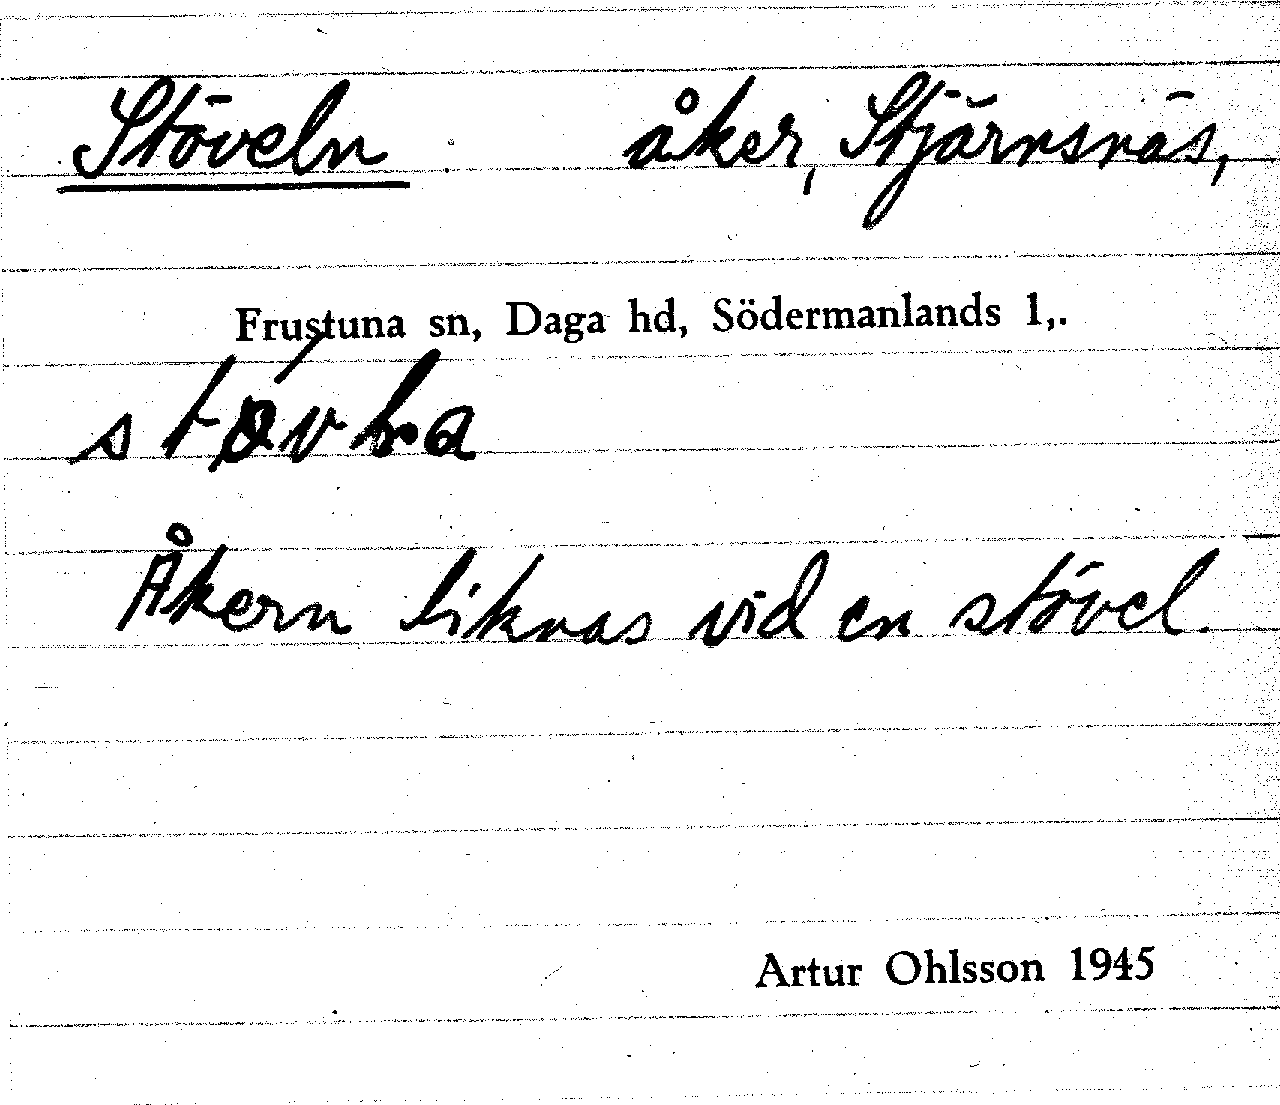 Stöveln åker, Stjärnsnäs,
Frustuna sn, Daga hd, Södermanlands l,.
Åkern liknas vid en stövel.
Artur Ohlsson 1945